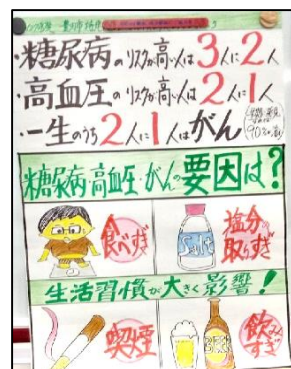 ・糖尿病のリスクが高い人は3人に2人
・高血圧のリスクが高い人は2人に1人
・一生のうち2人に1人はがん
90%
糖尿病・高血圧・がんの要因は?
食べすぎ
Salt
塩分の取りすぎ
生活習慣が大きく影響!
喫煙
飲みすぎ